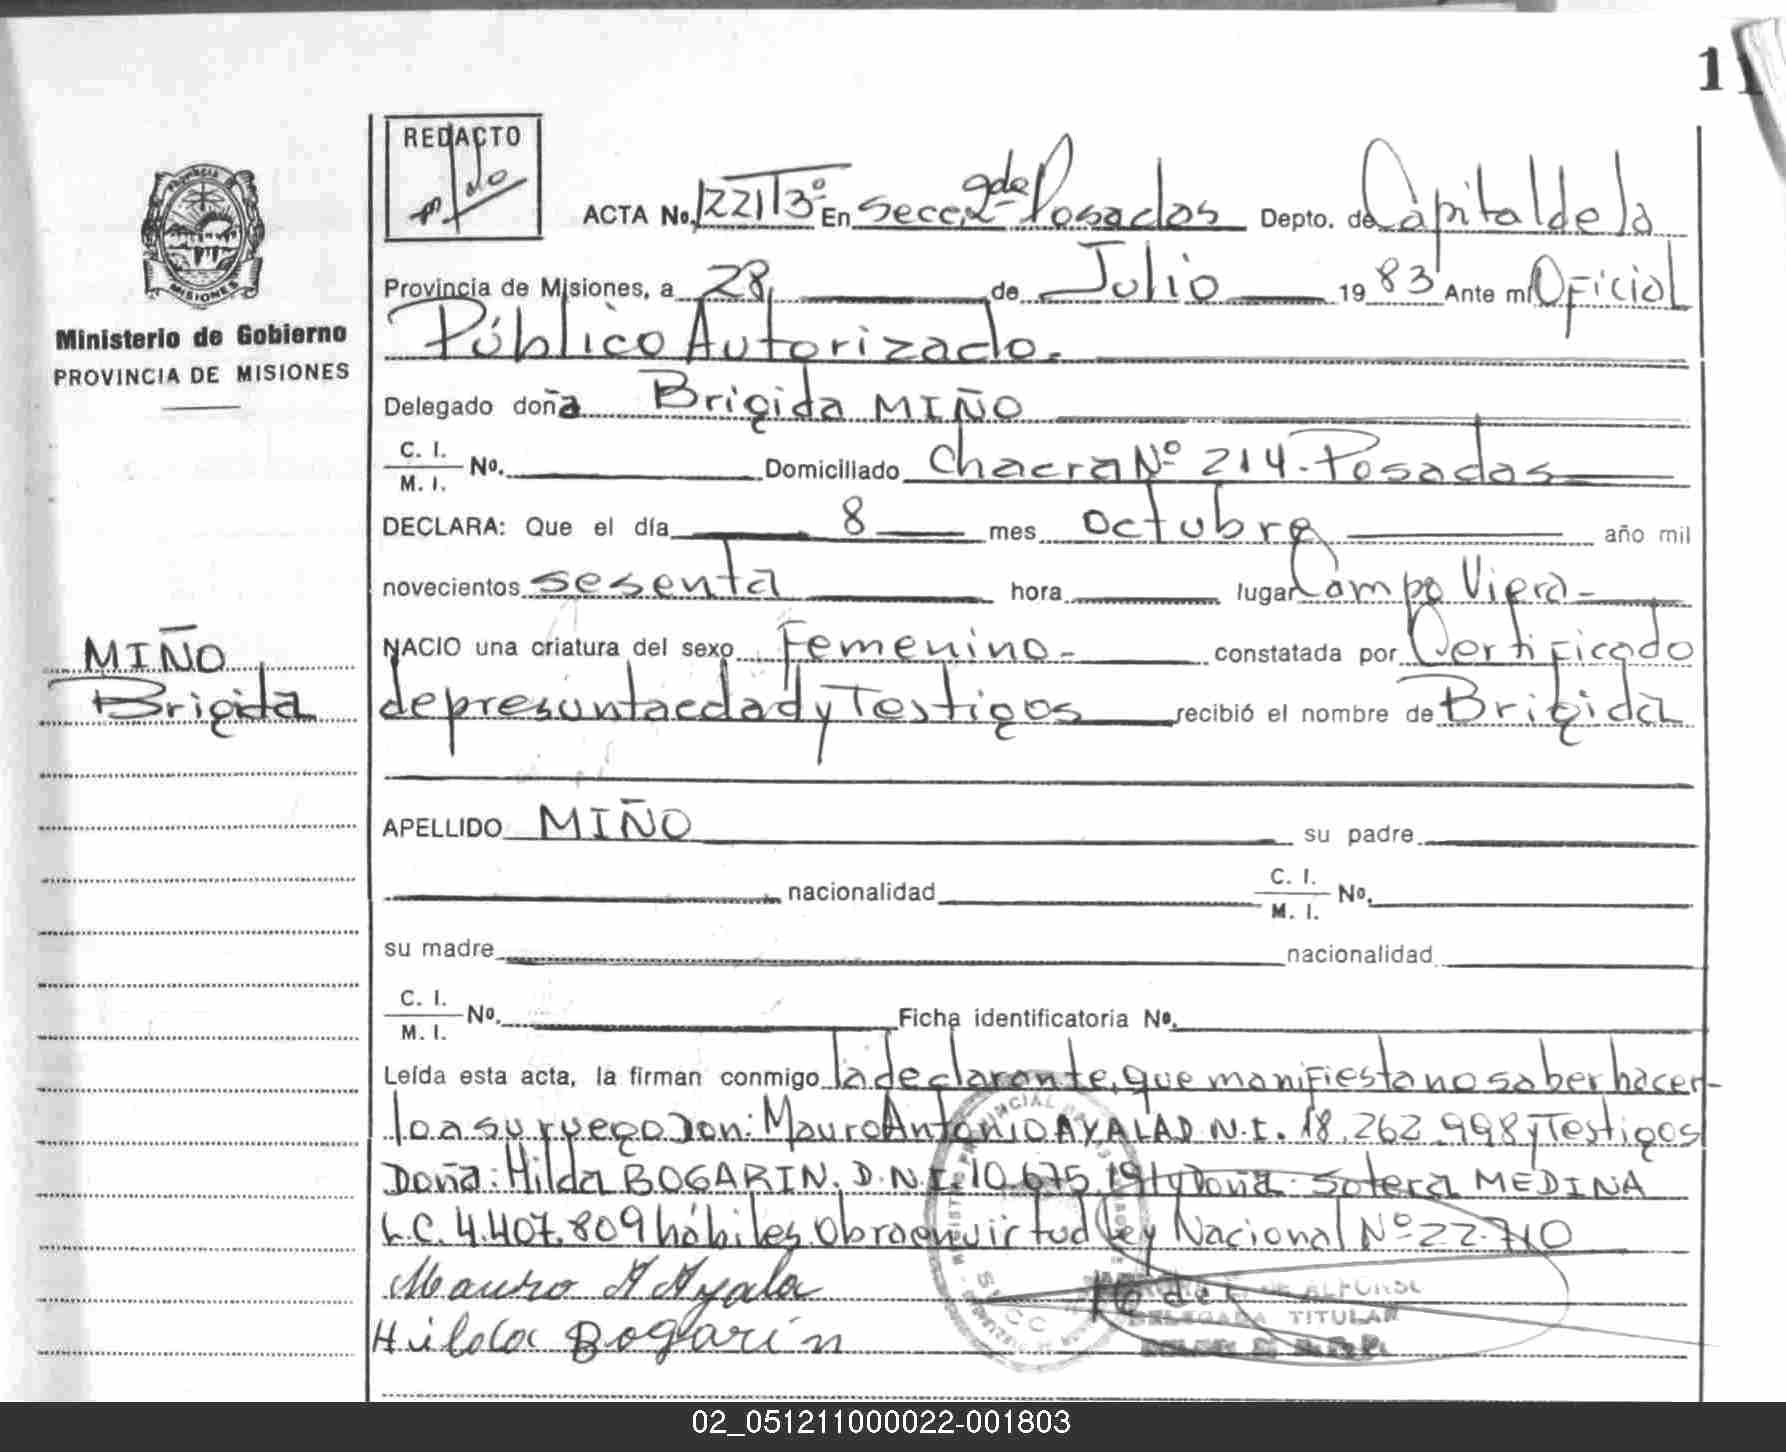 11
REDACTO
ACTA No. 1221T3º En Secc. 2ª de Posadas Depto. de Capital de la
Provincia de Misiones, a 28 de Julio 1983 Ante mí Oficial
Público Autorizado.
Ministerio de Gobierno
PROVINCIA DE MISIONES
Delegado doña Brigida MIÑO
C. I.
M. I. No. Domiciliado Chacra Nº 214 - Posadas
DECLARA: Que el día 8 mes octubre año mil
novecientos sesenta hora lugar Campo Viera -
MIÑO
Brigida
NACIO una criatura del sexo Femenino - constatada por Certificado
de presunta edad y Testigos recibió el nombre de Brigida
APELLIDO MIÑO su padre
nacionalidad C. I.
M. I. No.
su madre nacionalidad
C. I.
M. I. No. Ficha identificatoria No.
Leída esta acta, la firman conmigo la declarante, que manifiesta no saber hacer-
lo a su ruego Don: Mauro Antonio AYALA D.N.I. 18.262.998 y Testigos
Doña: Hilda BOGARIN. D.N.I. 10.675.191 y Doña: Sotera MEDINA
L.C. 4.407.809 hábiles. Obra en virtud Ley Nacional Nº 22.710
Mauro A Ayala
DE ALFONSO
DELEGADA TITULAR
Hilda Bogarín
02_051211000022-001803